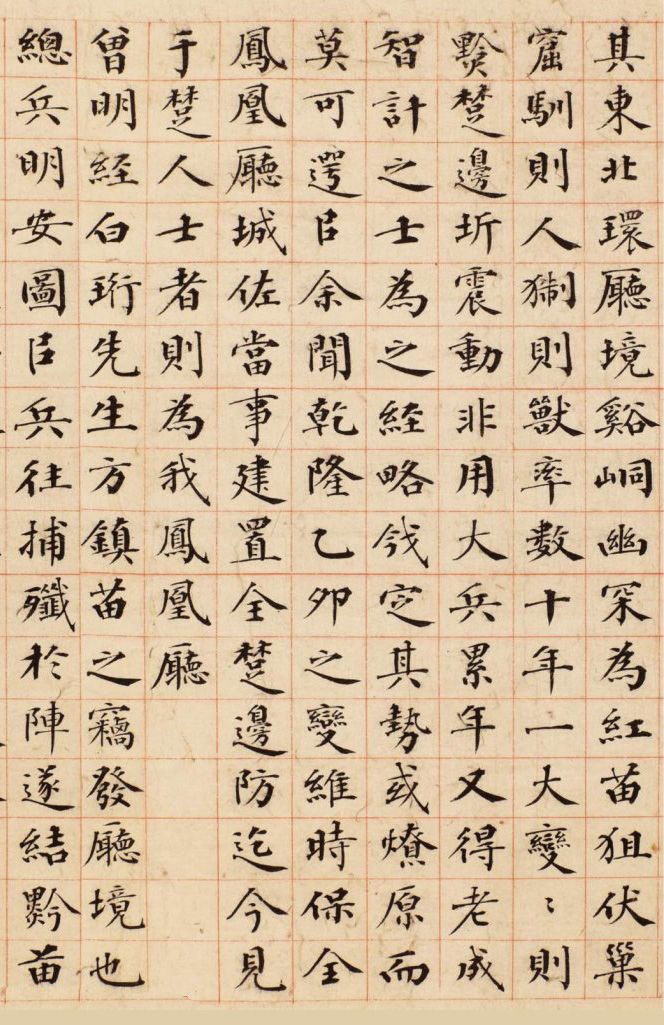 其東北環廳境谿峒幽罙為紅苗狙伏巢
窟馴則人猘則獸率數十年一大變〻則
黔楚邊圻震動非用大兵累年又得老成
智計之士為之經略戗定其勢或燎原而
莫可遌㠯余聞乾隆乙卯之變維時保全
鳳凰廳城佐當事建置全楚邊防迄今見
于楚人士者則為我鳳凰廳
曾明經白珩先生方鎮苗之竊發廳境也
總兵明安圖㠯兵往捕殲於陣遂結黔苗